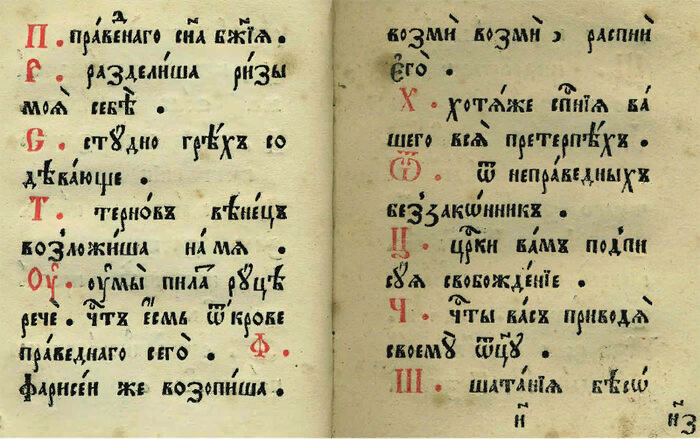 П. пра́веⷣнаго сн҃а бж҃їѧ .
Р. раздели́ша ри́зы
моѧ̀ себѣ̀ .
С. стꙋ́дно грѣ́хъ со
дѣ́вающе .
Т. терно́въ вѣне́цъ
возложи́ша на мѧ .
Оу҆. оу҆мы̀ пила́т рꙋцѣ
рече̇ . чи́стъ є҆́смь ѿ крове
пра́веднаго сего̀ . Ф.
фарисе́и же возопи́ша .
возмѝ возмѝ , распнѝ
є҆го̀ .
Х. хотѧ́же сп҃нїѧ ва́
шего всѧ̀ претерпѣ́хъ .
Ѿ. ѿ непра́ведныхъ
беззако́нникъ .
Ц. цр҃ки ва́мъ подпи
сꙋ́ѧ свобожде́нїе .
Ч. чⷭ҇ты ва́съ приводѧ̀
своемꙋ̀ ѻ҆ц҃ꙋ̀ .
Ш. шата́нїѧ бѣ́сѡ
н҃
н҃з